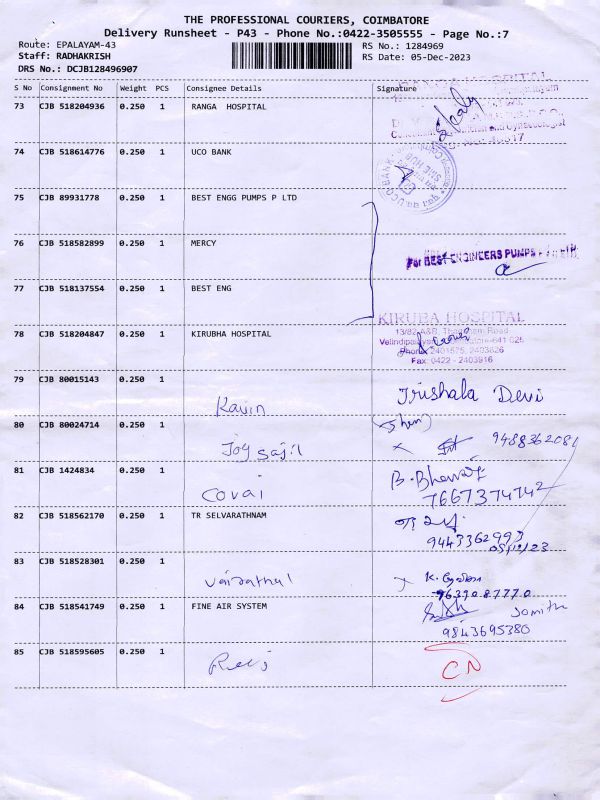 THE PROFESSIONAL COURIERS, COIMBATORE
Delivery Runsheet - P43 - Phone No.:0422-3505555 - Page No.:7
Route: EPALAYAM-43 RS No.: 1284969
Staff: RADHAKRISH RS Date: 05-Dec-2023
DRS No.: DCJB128496907
S No Consignment No Weight PCS Consignee Details Signature
73 CJB 518204936 0.250 1 RANGA HOSPITAL
74 CJB 518614776 0.250 1 UCO BANK
75 CJB 89931778 0.250 1 BEST ENGG PUMPS P LTD
76 CJB 518582899 0.250 1 MERCY
For BEST ENGINEERS PUMPS
77 CJB 518137554 0.250 1 BEST ENG
KIRUBA HOSPITAL
78 CJB 518204847 0.250 1 KIRUBHA HOSPITAL
Phone: 2401575, 2403626
Fax: 0422 - 2403916
79 CJB 80015143 0.250 1
Kavin Trishala Devi
80 CJB 80024714 0.250 1
Joy Sajil 9488362081
81 CJB 1424834 0.250 1
Covai 7667374742
82 CJB 518562170 0.250 1 TR SELVARATHNAM
9443362993
05/12/23
83 CJB 518528301 0.250 1
9639087770
84 CJB 518541749 0.250 1 FINE AIR SYSTEM
9843695380
85 CJB 518595605 0.250 1
CN